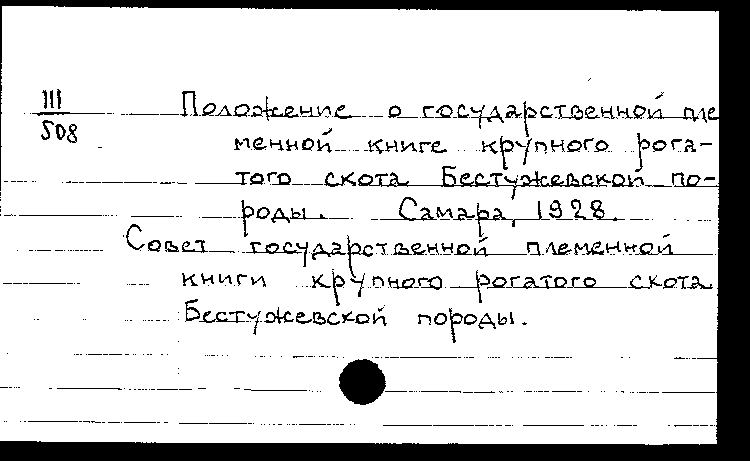 III
508
Положение о государственной пле
менной книге крупного рога-
того скота Бестужевской по-
роды. Самара, 1928.
Совет государственной племенной
книги крупного рогатого скота
Бестужевской породы.